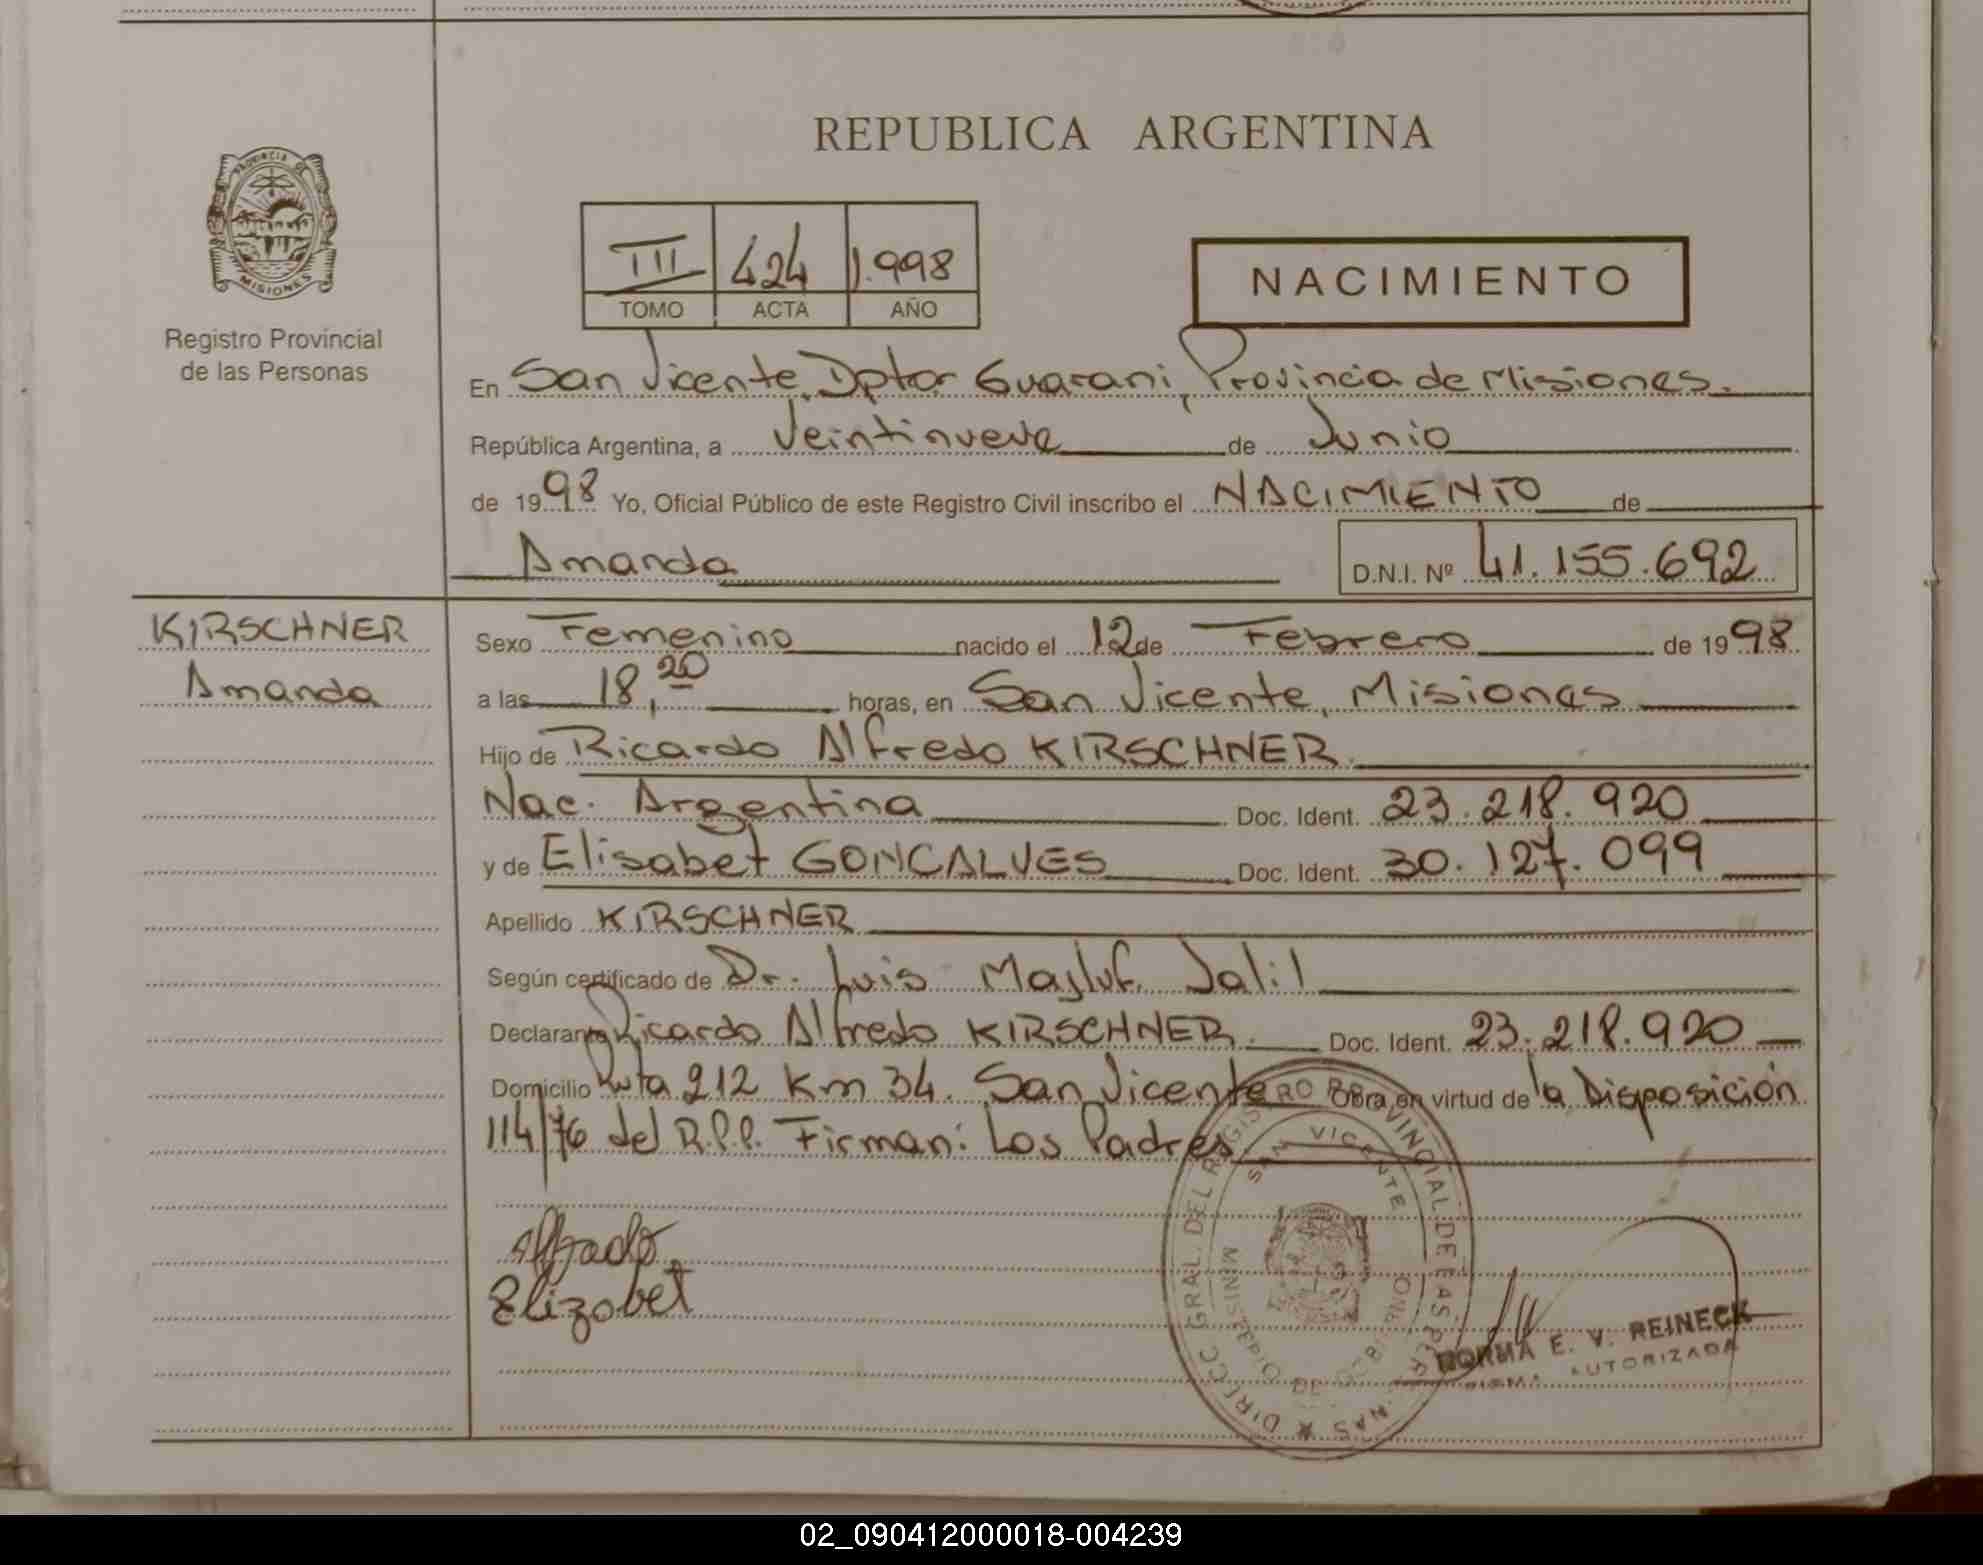 REPUBLICA ARGENTINA
PROVINCIA DE
MISIONES
Registro Provincial
de las Personas
III 424 1.998
TOMO ACTA AÑO
NACIMIENTO
En San Vicente, Dptor Guarani, Provincia de Misiones.
República Argentina, a Veintinueve de Junio
de 1998 Yo, Oficial Público de este Registro Civil inscribo el NACIMIENTO de
Amanda D.N.I. Nº 41.155.692
KIRSCHNER
Amanda
Sexo Femenino nacido el 12 de Febrero de 1998
a las 18,20 horas, en San Vicente, Misiones
Hijo de Ricardo Alfredo KIRSCHNER.
Nac. Argentina Doc. Ident. 23.218.920
y de Elisabet GONCALVES Doc. Ident. 30.127.099
Apellido KIRSCHNER
Según certificado de Dr. Luis Mayluf Jalil
Declarante Ricardo Alfredo KIRSCHNER. Doc. Ident. 23.218.920
Domicilio Ruta 212 Km 34. San Vicente Obra en virtud de la Disposición
114/76 del R.P.P. Firman: Los Padres
Alfredo
Elizabet
DIRECC GRAL. DEL REGISTRO PROVINCIAL DE LAS PERSONAS
SAN VICENTE
MINISTERIO DE GOBIERNO
NORMA E. V. REINECK
FIRMA AUTORIZADA
02_090412000018-004239